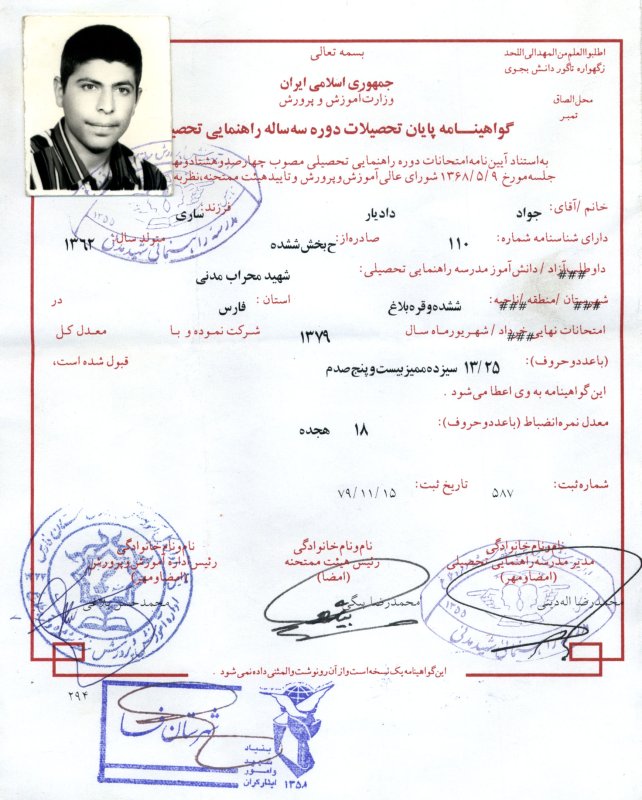 بسمه تعالی
اطلبوا العلم من المهد الی اللحد
ز گهواره تا گور دانش بجوی
جمهوری اسلامی ایران
وزارت آموزش و پرورش
محل الصاق
تمبر
گواهینـامه پایان تحصیلات دوره سه ساله راهنمایی تحصی
به استناد آیین نامه امتحانات دوره راهنمایی تحصیلی مصوب چهارصد و هشتاد و نه
جلسه مورخ ۱۳۶۸/۵/۹ شورای عالی آموزش و پرورش و تایید هیئت ممتحنه، نظر به
خانم / آقای: جواد دادیار فرزند: ساری
دارای شناسنامه شماره: ۱۱۰ صادره از: ح بخش ششده متولد سال ۱۳۶۲
داوطلب آزاد / دانش آموز مدرسه راهنمایی تحصیلی: شهید محراب مدنی
شهرستان / منطقه / ناحیه: ششده و قره بلاغ استان: فارس در
امتحانات نهایی خرداد / شهریور ماه سال ۱۳۷۹ شرکت نموده و با معدل کل
(با عدد و حروف): ۱۳/۲۵ سیزده ممیز بیست و پنج صدم قبول شده است،
این گواهینامه به وی اعطا می شود.
معدل نمره انضباط (با عدد و حروف): ۱۸ هجده
شماره ثبت: ۵۸۷ تاریخ ثبت: ۷۹/۱۱/۱۵
نام و نام خانوادگی
مدیر مدرسه راهنمایی تحصیلی
(امضا و مهر)
محمدرضا اله دینی
نام و نام خانوادگی
رئیس هیئت ممتحنه
(امضا)
محمدرضا بیگی
نام و نام خانوادگی
رئیس اداره آموزش و پرورش
(امضا و مهر)
محمدحسن
این گواهینامه یک نسخه است و از آن رونوشت و المثنی داده نمی شود.
۲۹۴
شهرستان فسا
بنیاد
شهید
و امور
ایثارگران
۱۳۵۸